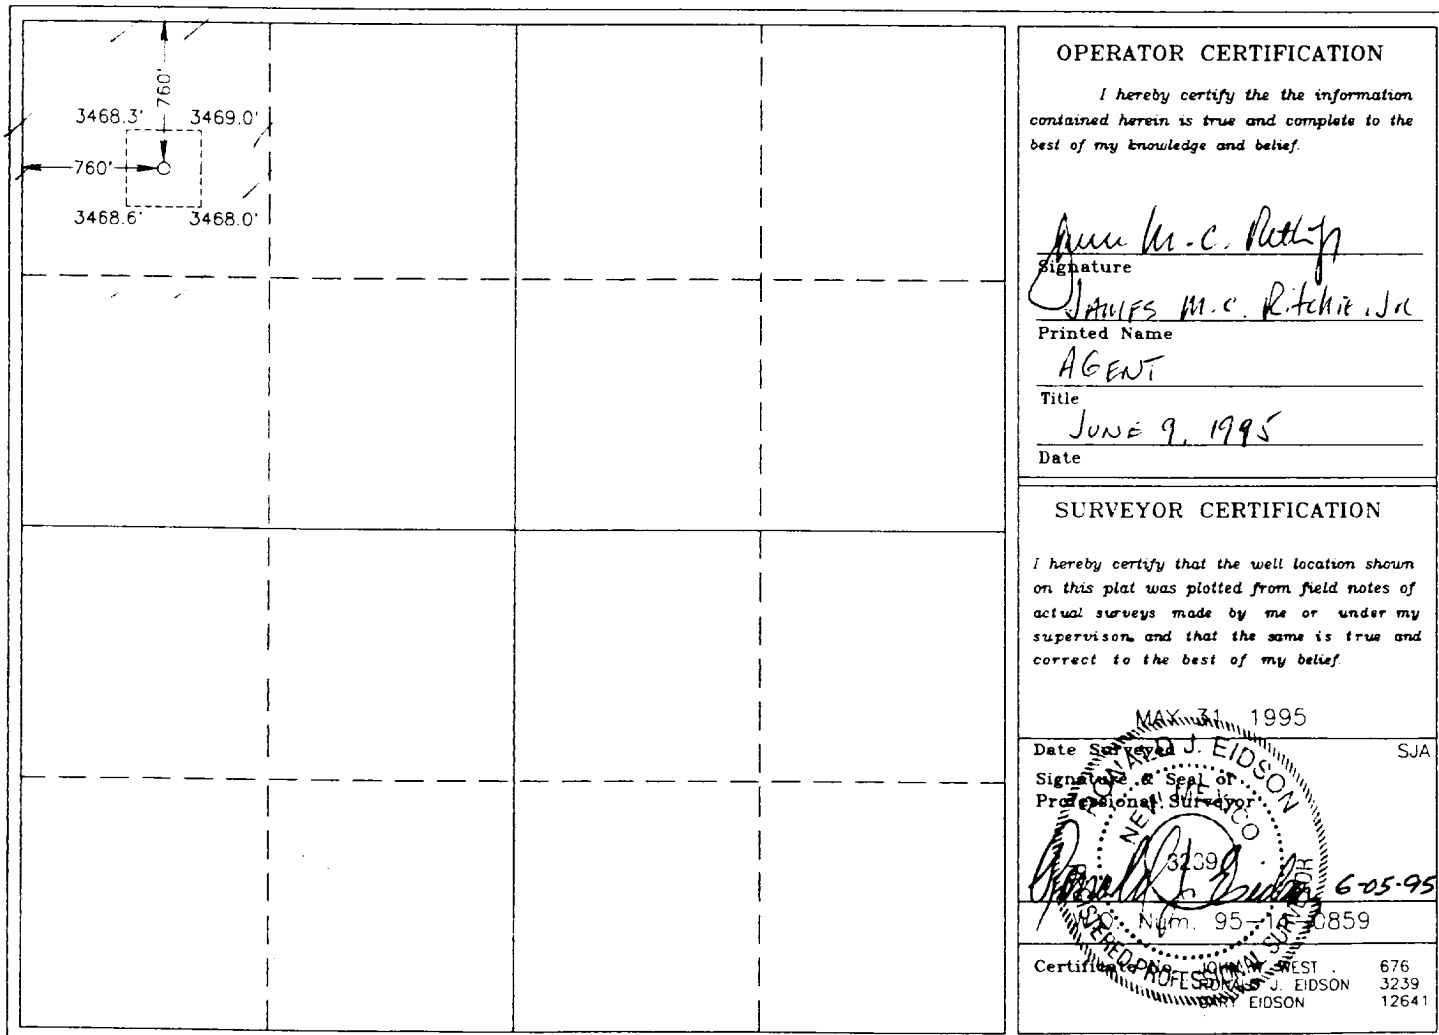 760'
3468.3' 3469.0'
760'
3468.6' 3468.0'
OPERATOR CERTIFICATION
I hereby certify the the information
contained herein is true and complete to the
best of my knowledge and belief.
Signature
JAMES M.C. Ritchie, JR
Printed Name
AGENT
Title
JUNE 9, 1995
Date
SURVEYOR CERTIFICATION
I hereby certify that the well location shown
on this plat was plotted from field notes of
actual surveys made by me or under my
supervison, and that the same is true and
correct to the best of my belief.
MAY 31, 1995
Date Surveyed SJA
Signature & Seal of
Professional Surveyor
RONALD J. EIDSON
NEW MEXICO
3239
REGISTERED PROFESSIONAL SURVEYOR
Ronald J Eidson 6-05-95
W.O. Num. 95-11-0859
Certificate No. JOHN W. WEST 676
RONALD J. EIDSON 3239
GARY EIDSON 12641